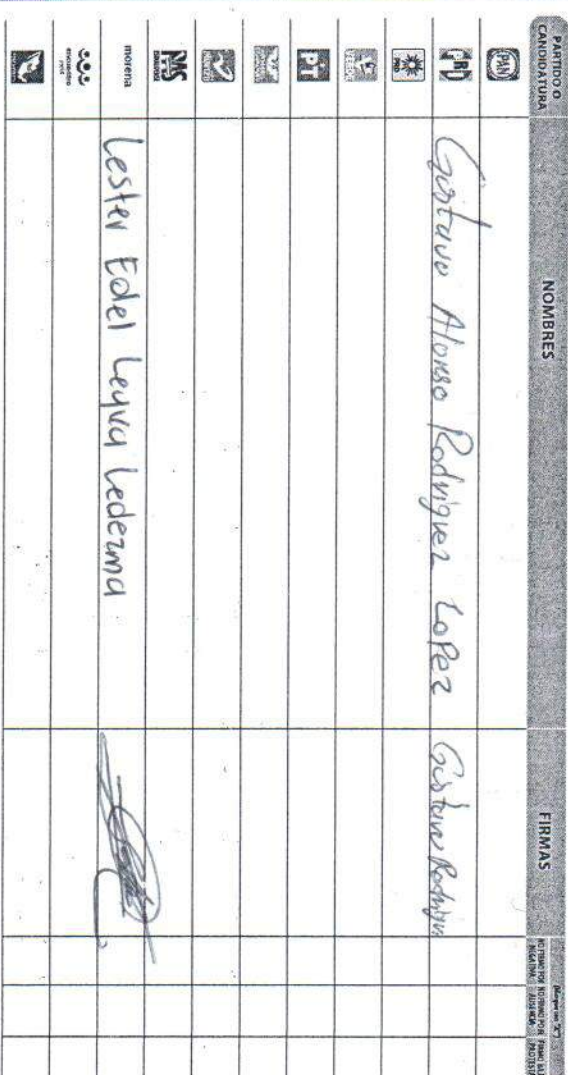 PARTIDO O CANDIDATURA NOMBRES FIRMAS
NO FIRMÓ POR NEGATIVA NO FIRMÓ POR AUSENCIA
PAN
PRI Gustavo Alonso Rodriguez Lopez Gustavo Rodriguez
PRD
PT
PAS
morena Lester Edel Leyva Ledezma
encuentro social